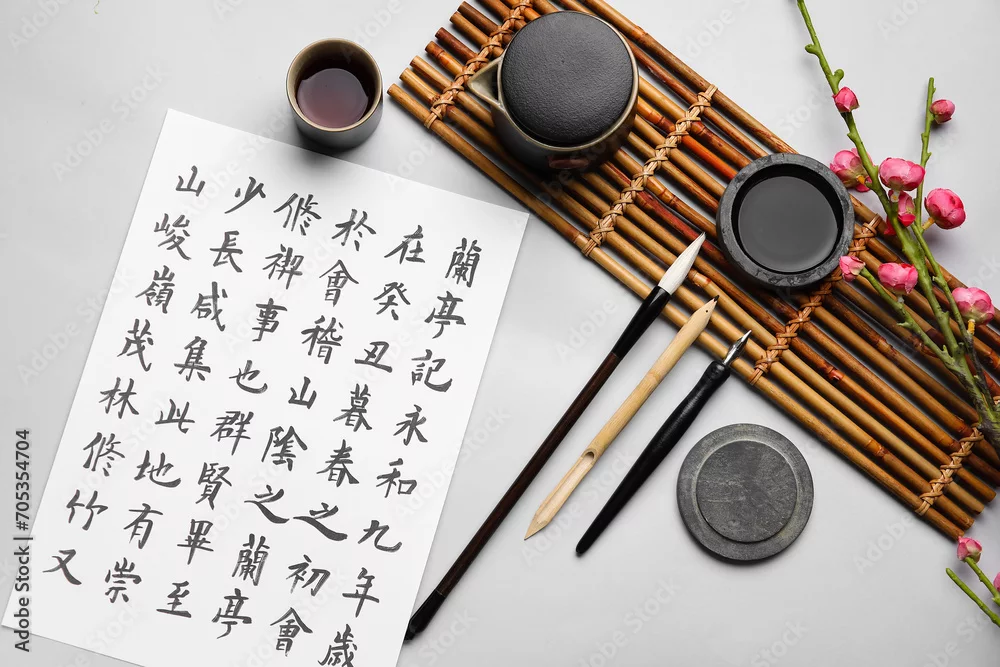 蘭亭記永和九年歲
在癸丑暮春之初會
於會稽山陰之蘭亭
修禊事也群賢畢至
少長咸集此地有崇
山峻嶺茂林修竹又
Adobe Stock | #705354704